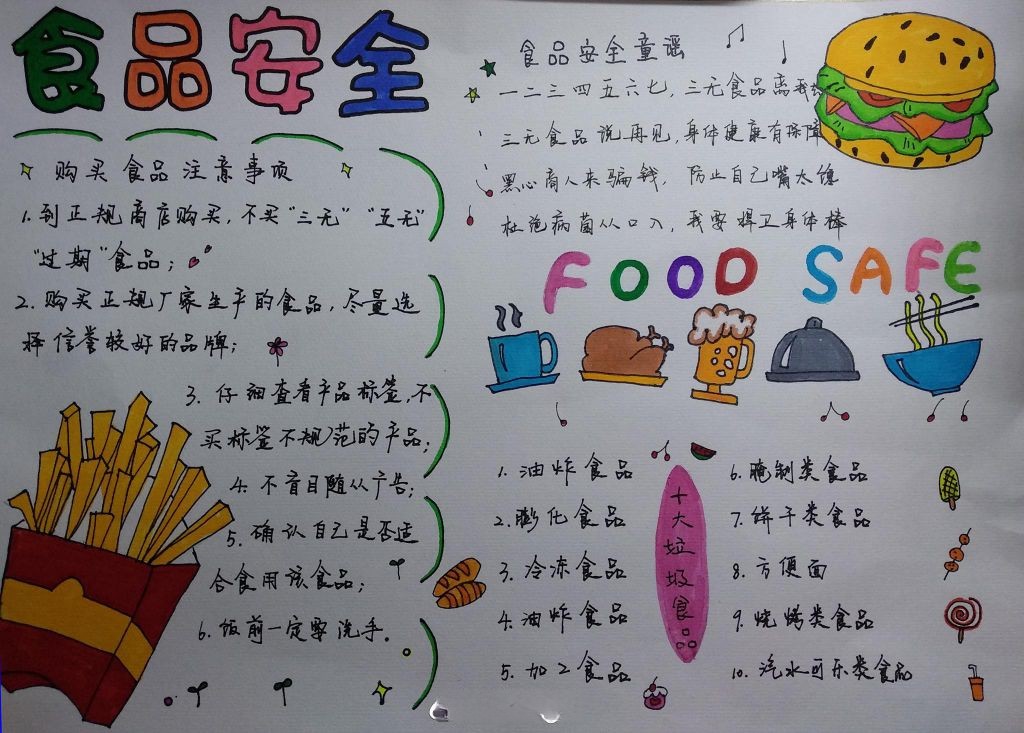 食品安全
购买食品注意事项
1.到正规商店购买,不买“三无”“五无”
“过期”食品;
2.购买正规厂家生产的食品,尽量选
择信誉较好的品牌;
3.仔细查看产品标签,不
买标签不规范的产品;
4.不盲目随从广告;
5.确认自己是否适
合食用该食品;
6.饭前一定要洗手。
食品安全童谣
一二三四五六七,三无食品离我
三无食品说再见,身体健康有保障
黑心商人来骗钱,防止自己嘴太馋
杜绝病菌从口入,我要捍卫身体棒
FOOD SAFE
十大垃圾食品
1.油炸食品
2.膨化食品
3.冷冻食品
4.油炸食品
5.加工食品
6.腌制类食品
7.饼干类食品
8.方便面
9.烧烤类食品
10.汽水可乐类食品